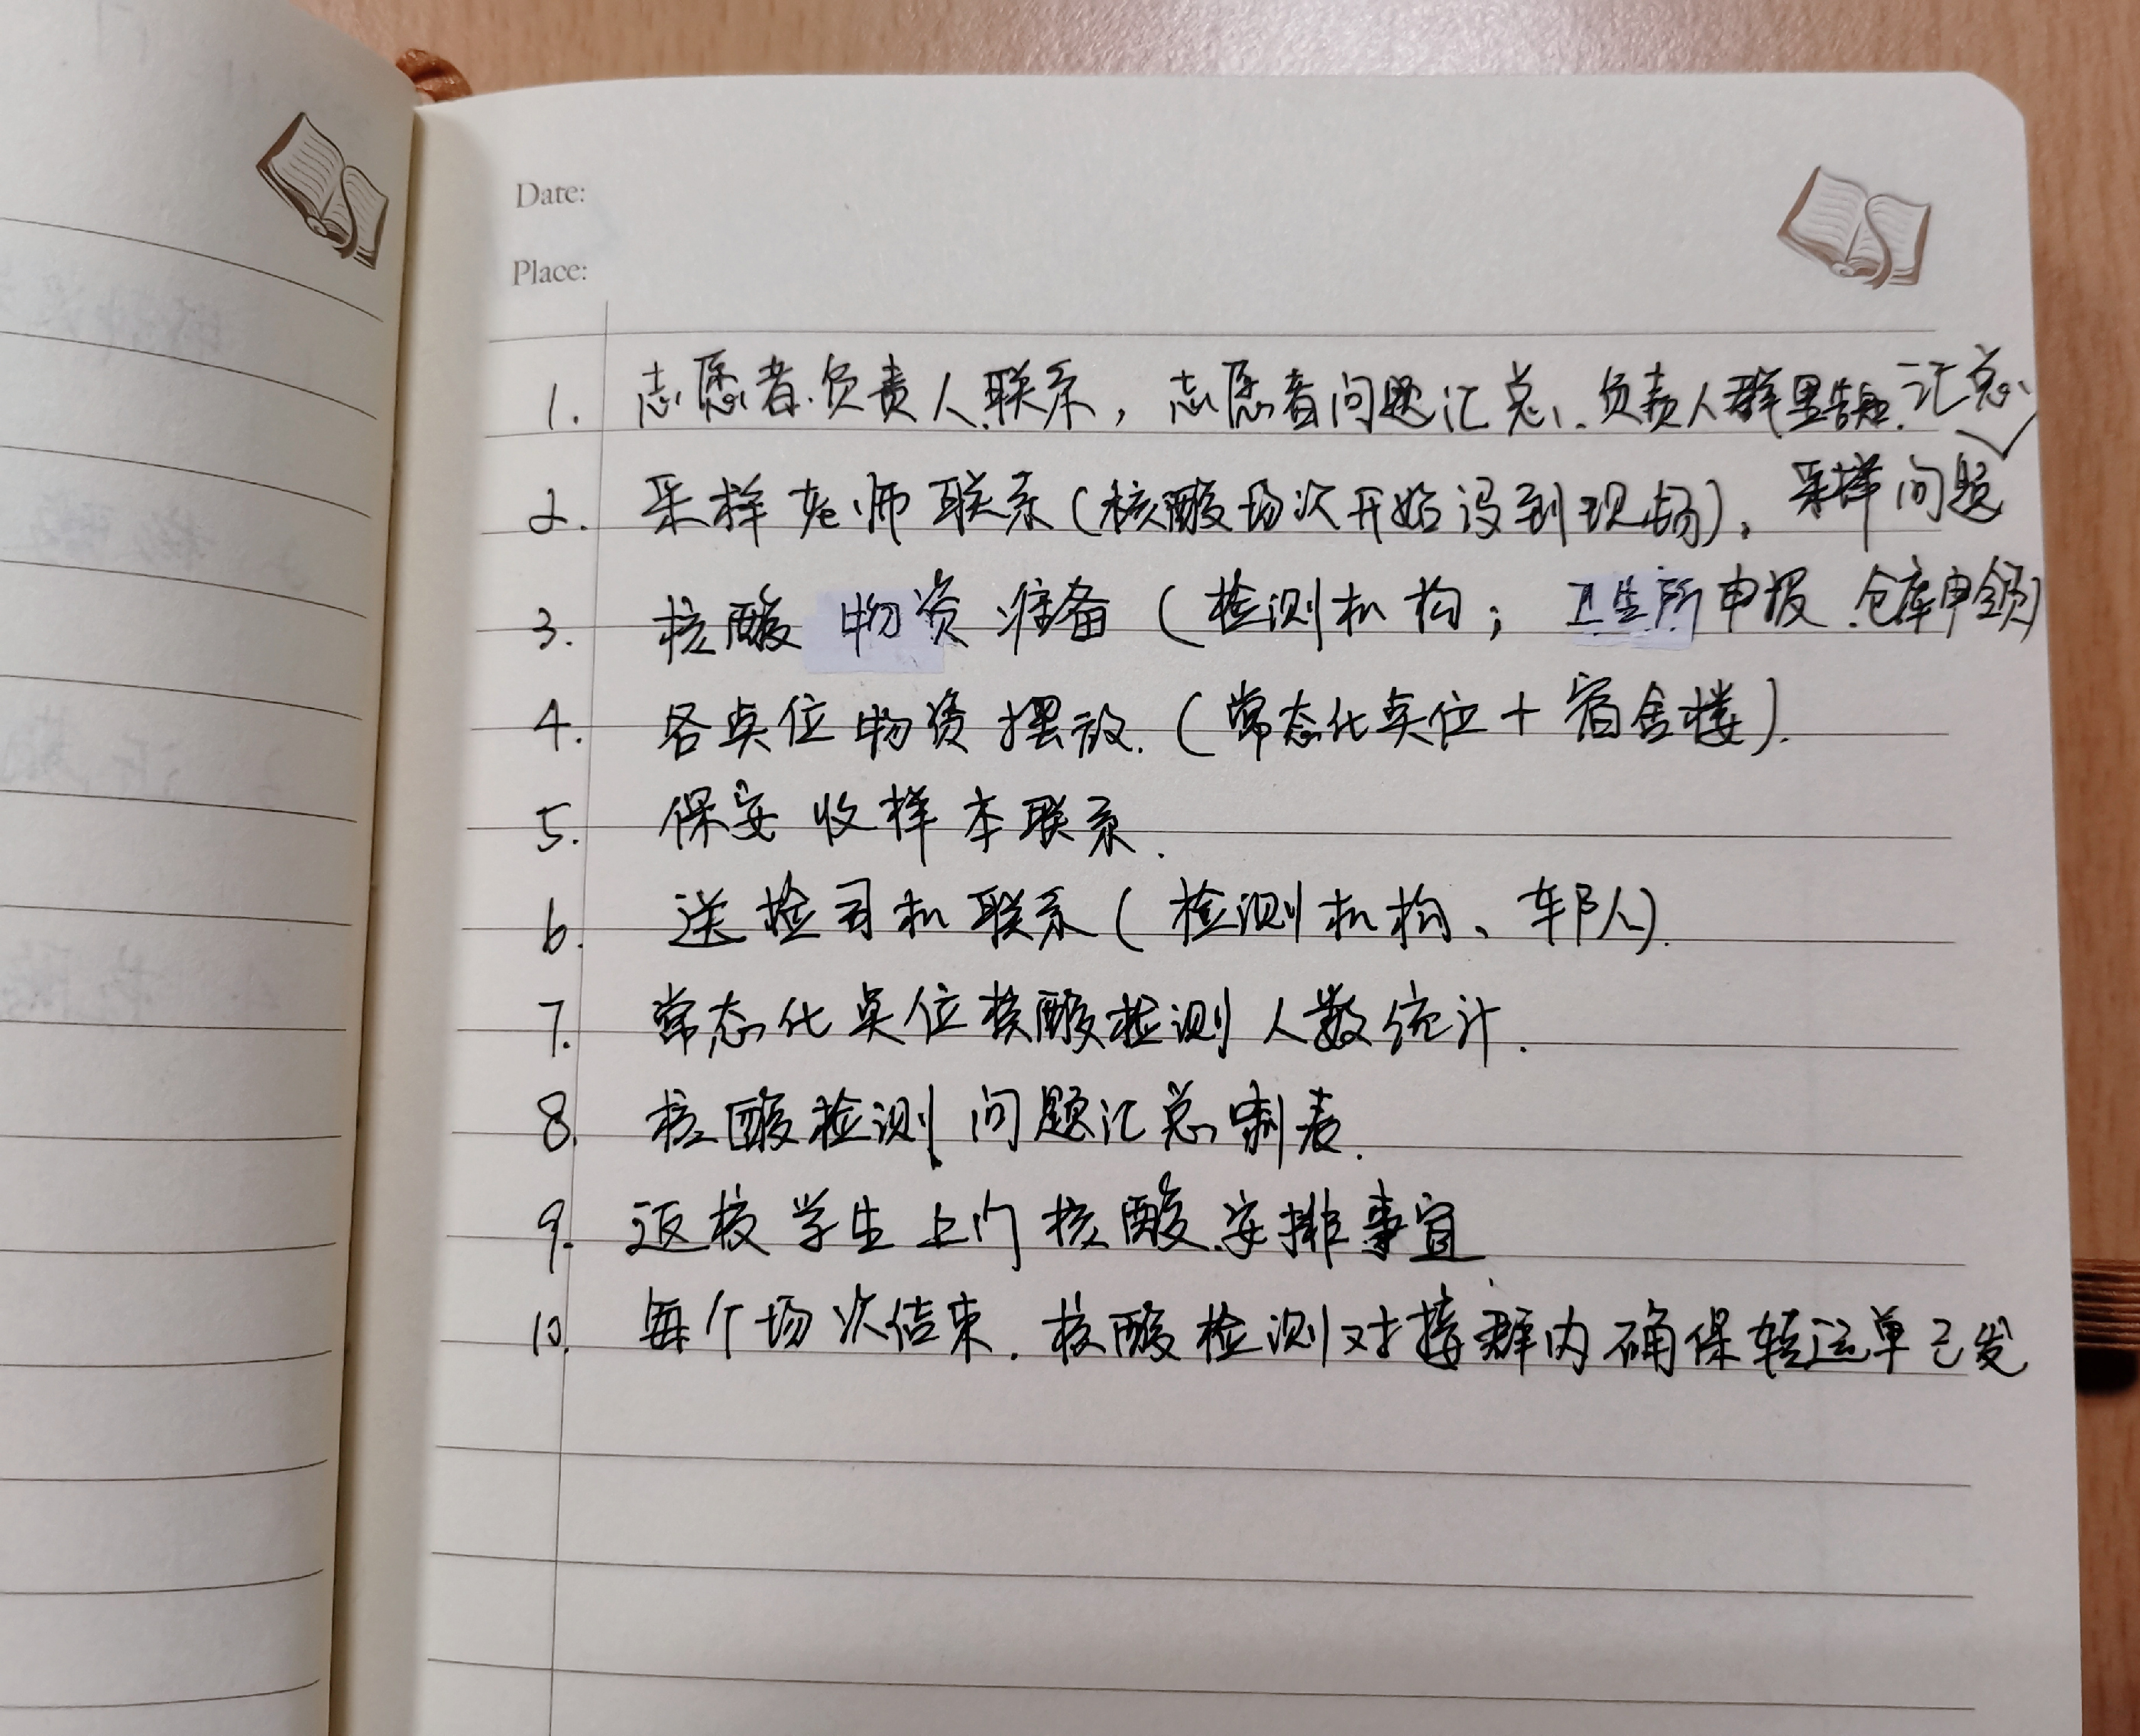 Date:
Place:
1. 志愿者负责人联系，志愿者问题汇总、负责人群里 汇总
2. 采样老师联系(核酸场次开始没到现场)，采样问题
3. 核酸物资准备(检测机构；卫生所申报 仓库申领)
4. 各点位物资摆放.(常态化点位+宿舍楼).
5. 保安收样本联系.
6. 送检司机联系(检测机构、车队).
7. 常态化点位核酸检测人数统计.
8. 核酸检测问题汇总制表.
9. 返校学生上门核酸安排事宜
10. 每个场次结束.核酸检测对接群内确保转运单已发